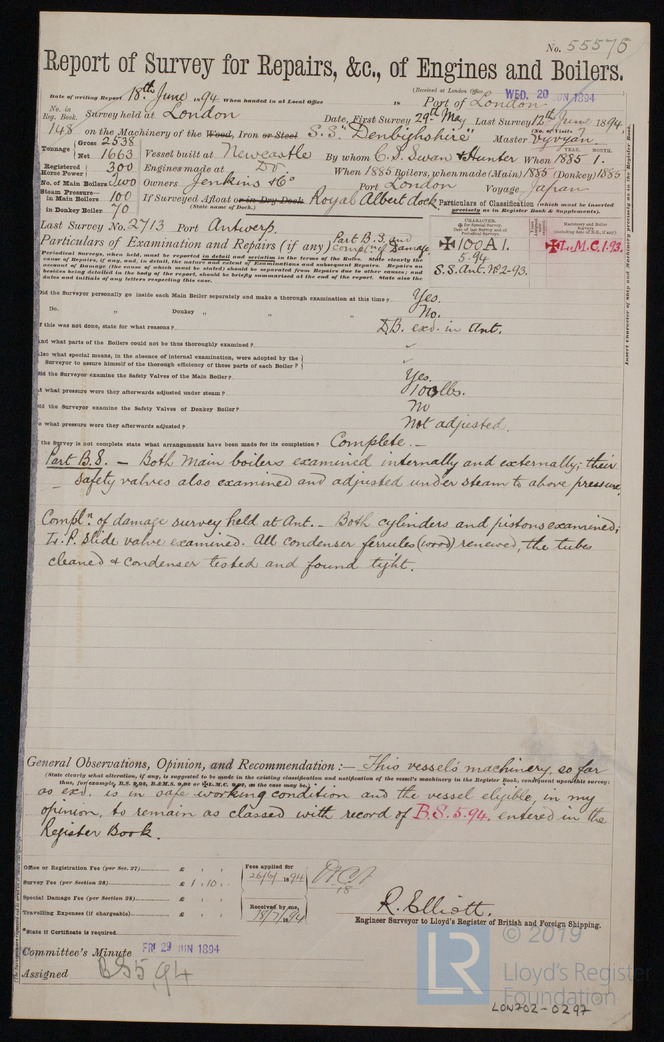 No. 55575
Report of Survey for Repairs, &c., of Engines and Boilers.
(Received at London Office WED. 20 JUN 1894
Date of writing Report 18th June 1894 When handed in at Local Office 18 Port of London
No. in Reg. Book. Survey held at London Date, First Survey 29th May Last Survey 12th June 1894
(No. of Visits 7)
148 on the Machinery of the Wood, Iron or Steel S.S. "Denbighshire" Master Vyvyan
Tonnage Gross 2538
Net 1663 Vessel built at Newcastle By whom C. S. Swan & Hunter When 1885 1.
YEAR. MONTH.
Registered Horse Power 300 Engines made at Do When 1885 Boilers, when made (Main) 1885 (Donkey) 1885
No. of Main Boilers two Owners Jenkins & Co Port London Voyage Japan
Steam Pressure in Main Boilers 100 If Surveyed Afloat or in Dry Dock Royal Albert dock.
in Donkey Boiler 70 (State name of Dock.)
Particulars of Classification (which must be inserted precisely as in Register Book & Supplements).
Last Survey No. 2713 Port Antwerp.
Particulars of Examination and Repairs (if any) Part B.S. and Compln of Damage
CHARACTER.
✠100A1.
5.94
S.S. Ant. No 2-93.
Machinery and Boiler Surveys
✠L.M.C.1.93.
Periodical Surveys, when held, must be reported in detail and seriatim in the terms of the Rules. State clearly the cause of Repairs, if any, and, in detail, the nature and extent of Examinations and subsequent Repairs. Repairs on account of Damage (the cause of which must be stated) should be separated from Repairs due to other causes; and besides being detailed in the body of the report, should be briefly summarised at the end of the report. State also the dates and initials of any letters respecting this case.
Did the Surveyor personally go inside each Main Boiler separately and make a thorough examination at this time? Yes.
Do. " Donkey " " " No.
If this was not done, state for what reasons? D.B. exd. in Ant.
And what parts of the Boilers could not be thus thoroughly examined?
Also what special means, in the absence of internal examination, were adopted by the Surveyor to assure himself of the thorough efficiency of those parts of each Boiler?
Did the Surveyor examine the Safety Valves of the Main Boiler? Yes.
At what pressure were they afterwards adjusted under steam? 100 lbs.
Did the Surveyor examine the Safety Valves of Donkey Boiler? No
At what pressure were they afterwards adjusted? Not adjusted.
If the Survey is not complete state what arrangements have been made for its completion? Complete. —
Part B.S. — Both main boilers examined internally and externally; their
safety valves also examined and adjusted under steam to above pressure.
Compln. of damage survey held at Ant. — Both cylinders and pistons examined;
L.P. slide valve examined. All condenser ferrules (wood) renewed, the tubes
cleaned & condenser tested and found tight.
General Observations, Opinion, and Recommendation:— This vessel's machinery, so far
(State clearly what alteration, if any, is suggested to be made in the existing classification and notification of the vessel's machinery in the Register Book, consequent upon this survey:
as exd. is in safe working condition and the vessel eligible, in my
opinion, to remain as classed with record of B.S. 5.94. entered in the
Register Book.
Office or Registration Fee (per Sec. 27) £
Survey Fee (per Section 28) £ 1 . 10 .
Special Damage Fee (per Section 28) £
Travelling Expenses (if chargeable) £
Fees applied for
1894
Received by me,
18/7/1894
*State if Certificate is required
R. Elliott.
Engineer Surveyor to Lloyd's Register of British and Foreign Shipping.
Committee's Minute FRI 29 JUN 1894
Assigned BS 5,94
Insert Character of Ship and Machinery precisely as in the Register Book.
LR
© 2019
Lloyd's Register
Foundation
LON702-0297